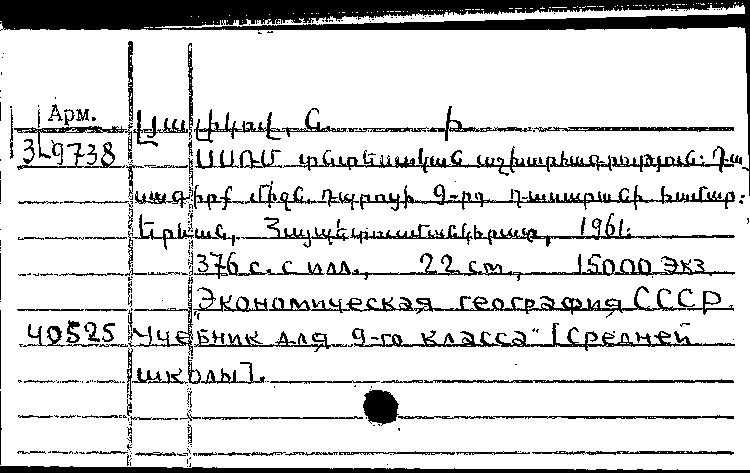 Арм.
Լյալիկով, Ն. Ի
3-9738 ՍՍՌՄ տնտեսական աշխարհագրություն: Դա
սագիրք միջն. դպրոցի 9-րդ դասարանի համար:
Երևան, Հայպետուսմանկհրատ, 1961.
376 с. с илл., 22 см., 15000 экз.
"Экономическая география СССР.
40525 Учебник для 9-го класса" [Средней
школы].